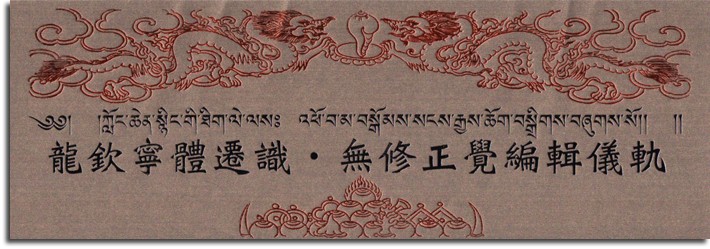 ༄༅། །ཀློང་ཆེན་སྙིང་གི་ཐིག་ལེ་ལས༔ འཕོ་བ་མ་བསྒོམས་སངས་རྒྱས་ཆོག་བསྒྲིགས་བཞུགས་སོ།། །།
龍欽寧體遷識·無修正覺編輯儀軌